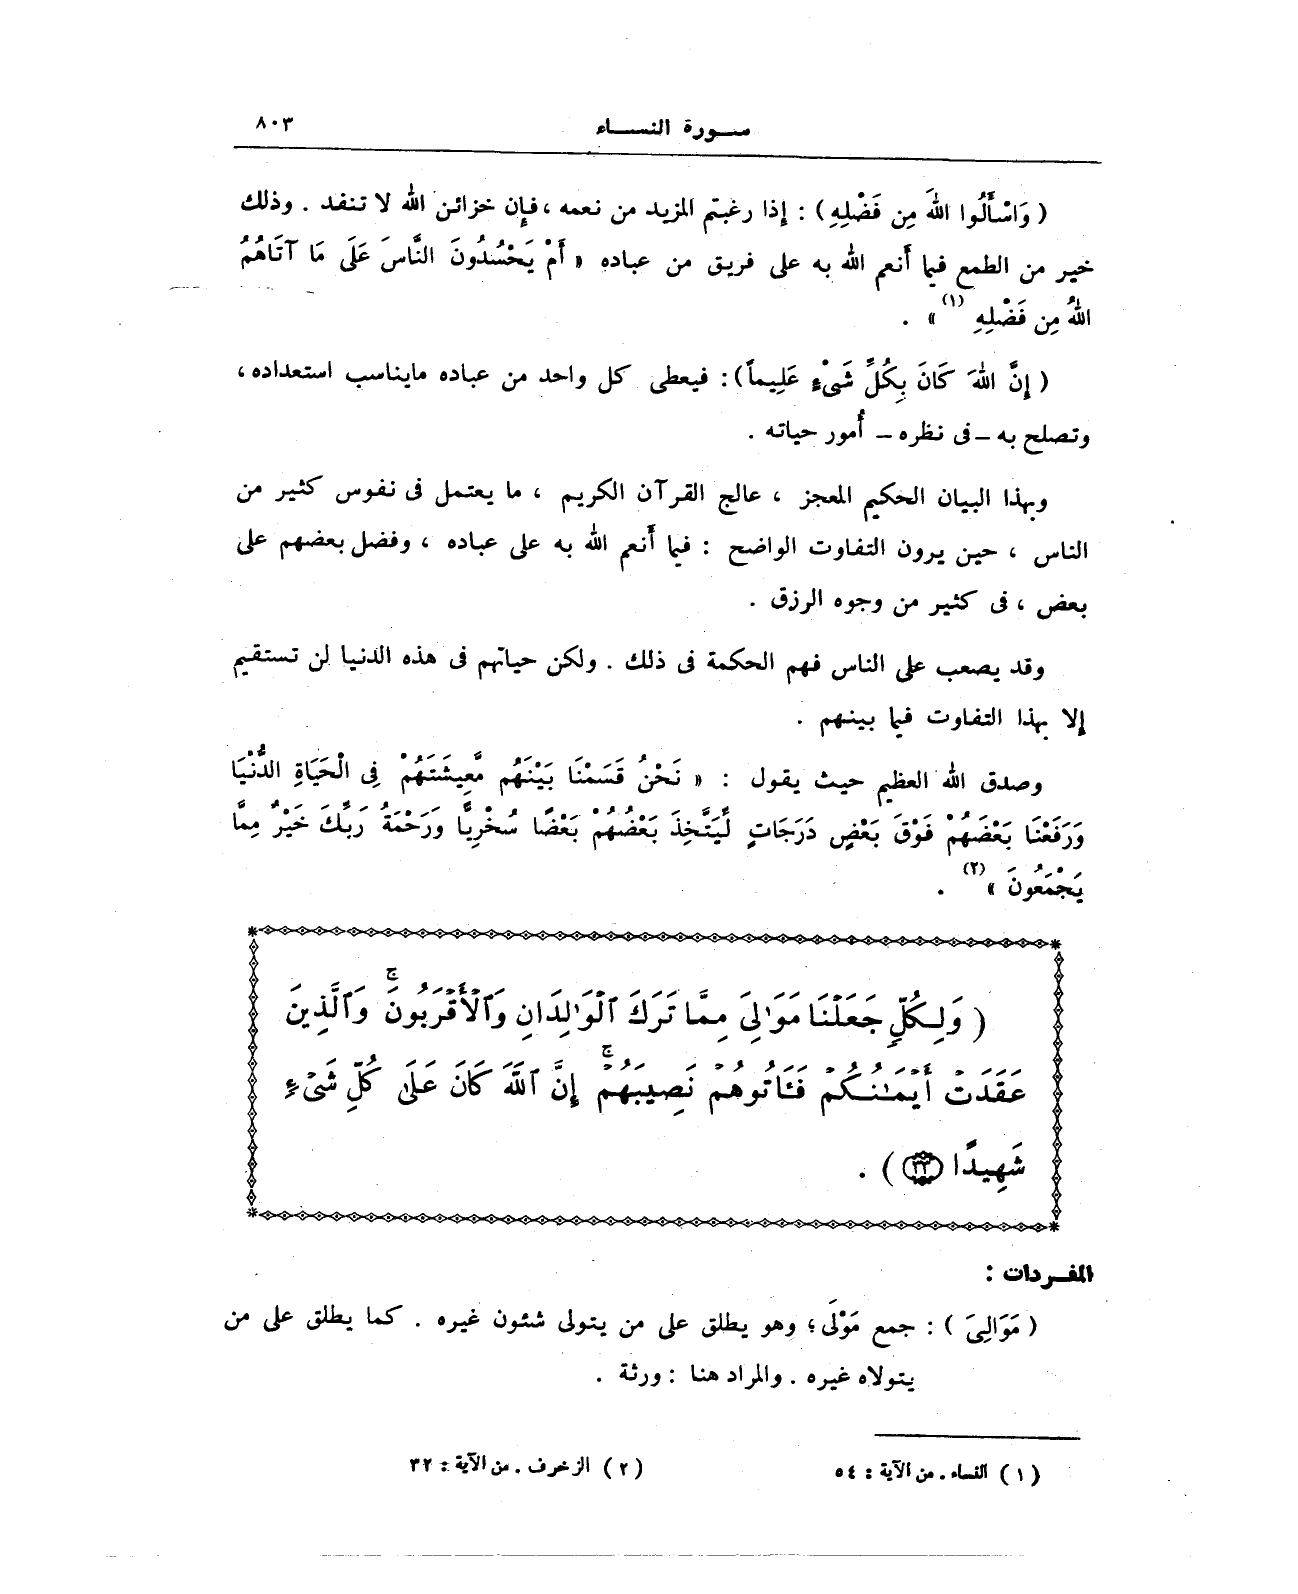 سورة النساء ٨٠٣
( وَاسْأَلُوا اللهَ مِن فَضْلِهِ ) : إذا رغبتم المزيد من نعمه ، فإن خزائن الله لا تنفد . وذلك
خير من الطمع فيما أنعم الله به على فريق من عباده « أَمْ يَحْسُدُونَ النَّاسَ عَلَى مَا آتَاهُمُ
اللهُ مِن فَضْلِهِ (١) » .
( إِنَّ اللهَ كَانَ بِكُلِّ شَىْءٍ عَلِيماً ) : فيعطى كل واحد من عباده مايناسب استعداده ،
وتصلح به – فى نظره – أُمور حياته .
وبهذا البيان الحكيم المعجز ، عالج القرآن الكريم ، ما يعتمل فى نفوس كثير من
الناس ، حين يرون التفاوت الواضح : فيما أنعم الله به على عباده ، وفضل بعضهم على
بعض ، فى كثير من وجوه الرزق .
وقد يصعب على الناس فهم الحكمة فى ذلك . ولكن حياتهم فى هذه الدنيا لن تستقيم
إلا بهذا التفاوت فيما بينهم .
وصدق الله العظيم حيث يقول : « نَحْنُ قَسَمْنَا بَيْنَهُم مَّعِيشَتَهُمْ فِى الْحَيَاةِ الدُّنْيَا
وَرَفَعْنَا بَعْضَهُمْ فَوْقَ بَعْضٍ دَرَجَاتٍ لِّيَتَّخِذَ بَعْضُهُمْ بَعْضًا سُخْرِيًّا وَرَحْمَةُ رَبِّكَ خَيْرٌ مِمَّا
يَجْمَعُونَ » (٢) .
( وَلِكُلٍّ جَعَلْنَا مَوَٰلِىَ مِمَّا تَرَكَ ٱلْوَٰلِدَانِ وَٱلْأَقْرَبُونَ ۚ وَٱلَّذِينَ
عَقَدَتْ أَيْمَـٰنُكُمْ فَـَٔاتُوهُمْ نَصِيبَهُمْ ۚ إِنَّ ٱللَّهَ كَانَ عَلَىٰ كُلِّ شَىْءٍ
شَهِيدًا ٣٣ ) .
المفردات :
( مَوَالِىَ ) : جمع مَوْلَى ؛ وهو يطلق على من يتولى شئون غيره . كما يطلق على من
يتولاه غيره . والمراد هنا : ورثة .
( ١ ) النساء . من الآية : ٥٤ ( ٢ ) الزخرف . من الآية : ٣٢